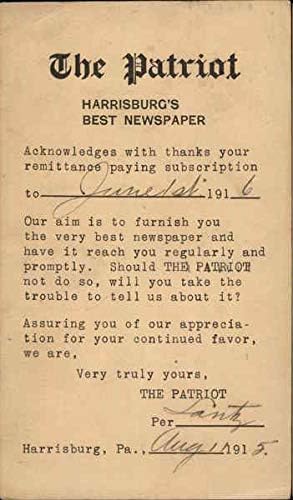 The Patriot
HARRISBURG'S
BEST NEWSPAPER
Acknowledges with thanks your
remittance paying subscription
to June 1st 1916
Our aim is to furnish you
the very best newspaper and
have it reach you regularly and
promptly. Should THE PATRIOT
not do so, will you take the
trouble to tell us about it?
Assuring you of our apprecia-
tion for your continued favor,
we are,
Very truly yours,
THE PATRIOT
Per Lantz
Harrisburg, Pa., Aug 1 1915.